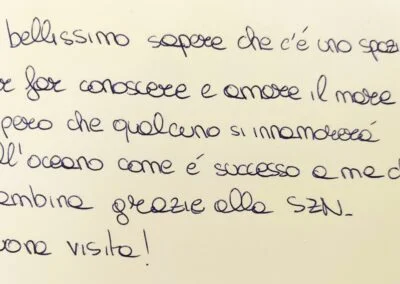 bellissimo sapere che c'é uno spazi
r far conoscere e amare il mare
pero che qualcuno si innamorerá
ll'oceano come é successo a me d
ambina grazie alla SZN_
uona visita!